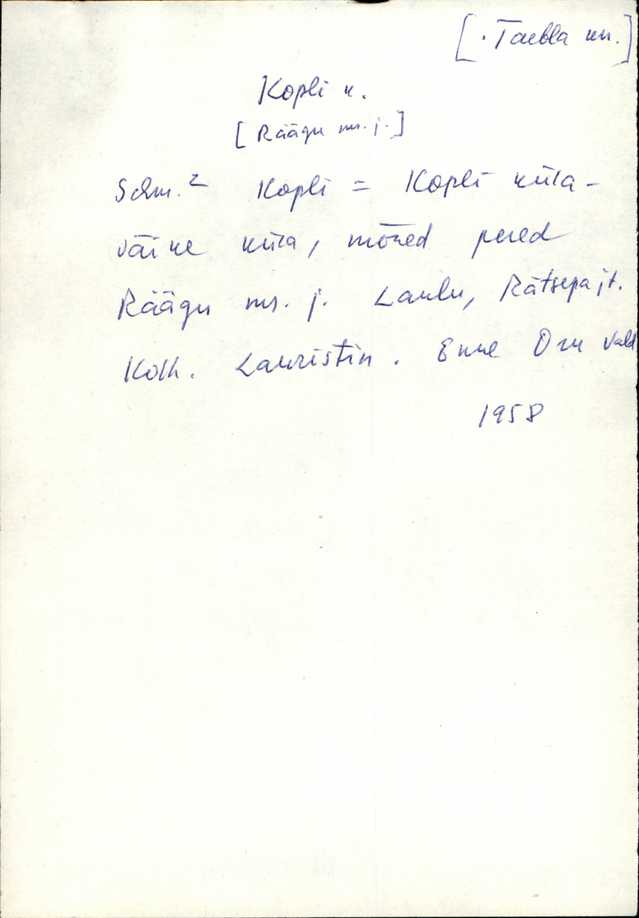 [. Taebla kn.]
Kopli k.
[Räägu ms. j.]
Schm.² Kopli = Kopli küla-
väike küla, mõned pered
Räägu ms. j. Laulu, Rätsepa jt.
Kolh. Lauristin. Enne Oru vald
1958